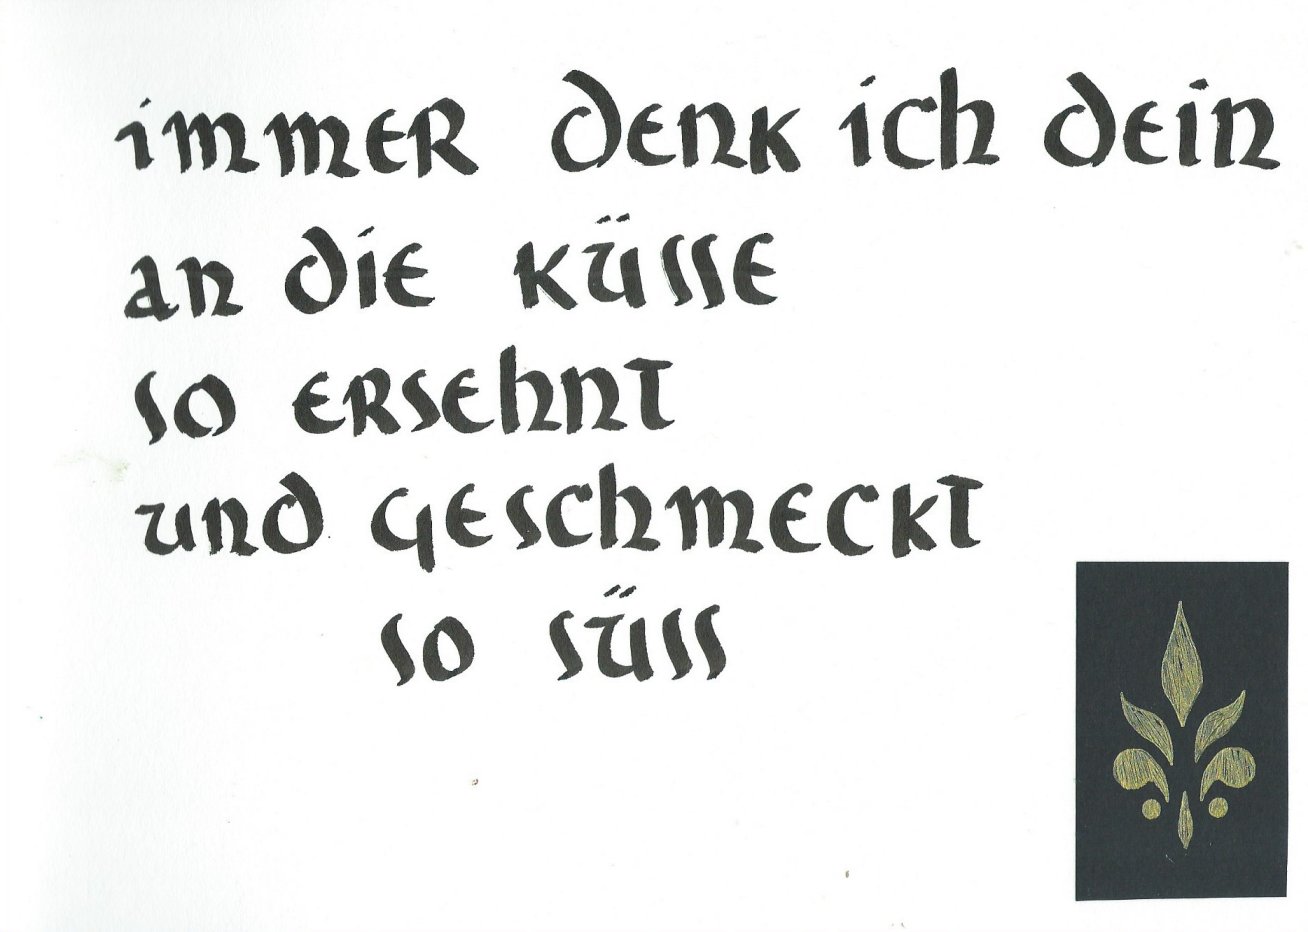 immer denk ich dein
an die küsse
so ersehnt
und geschmeckt
so süss